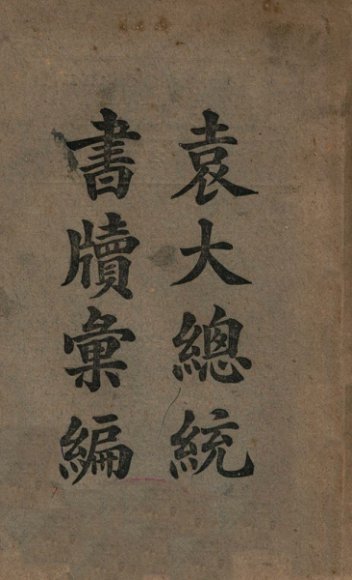 袁大總統
書牘彙編